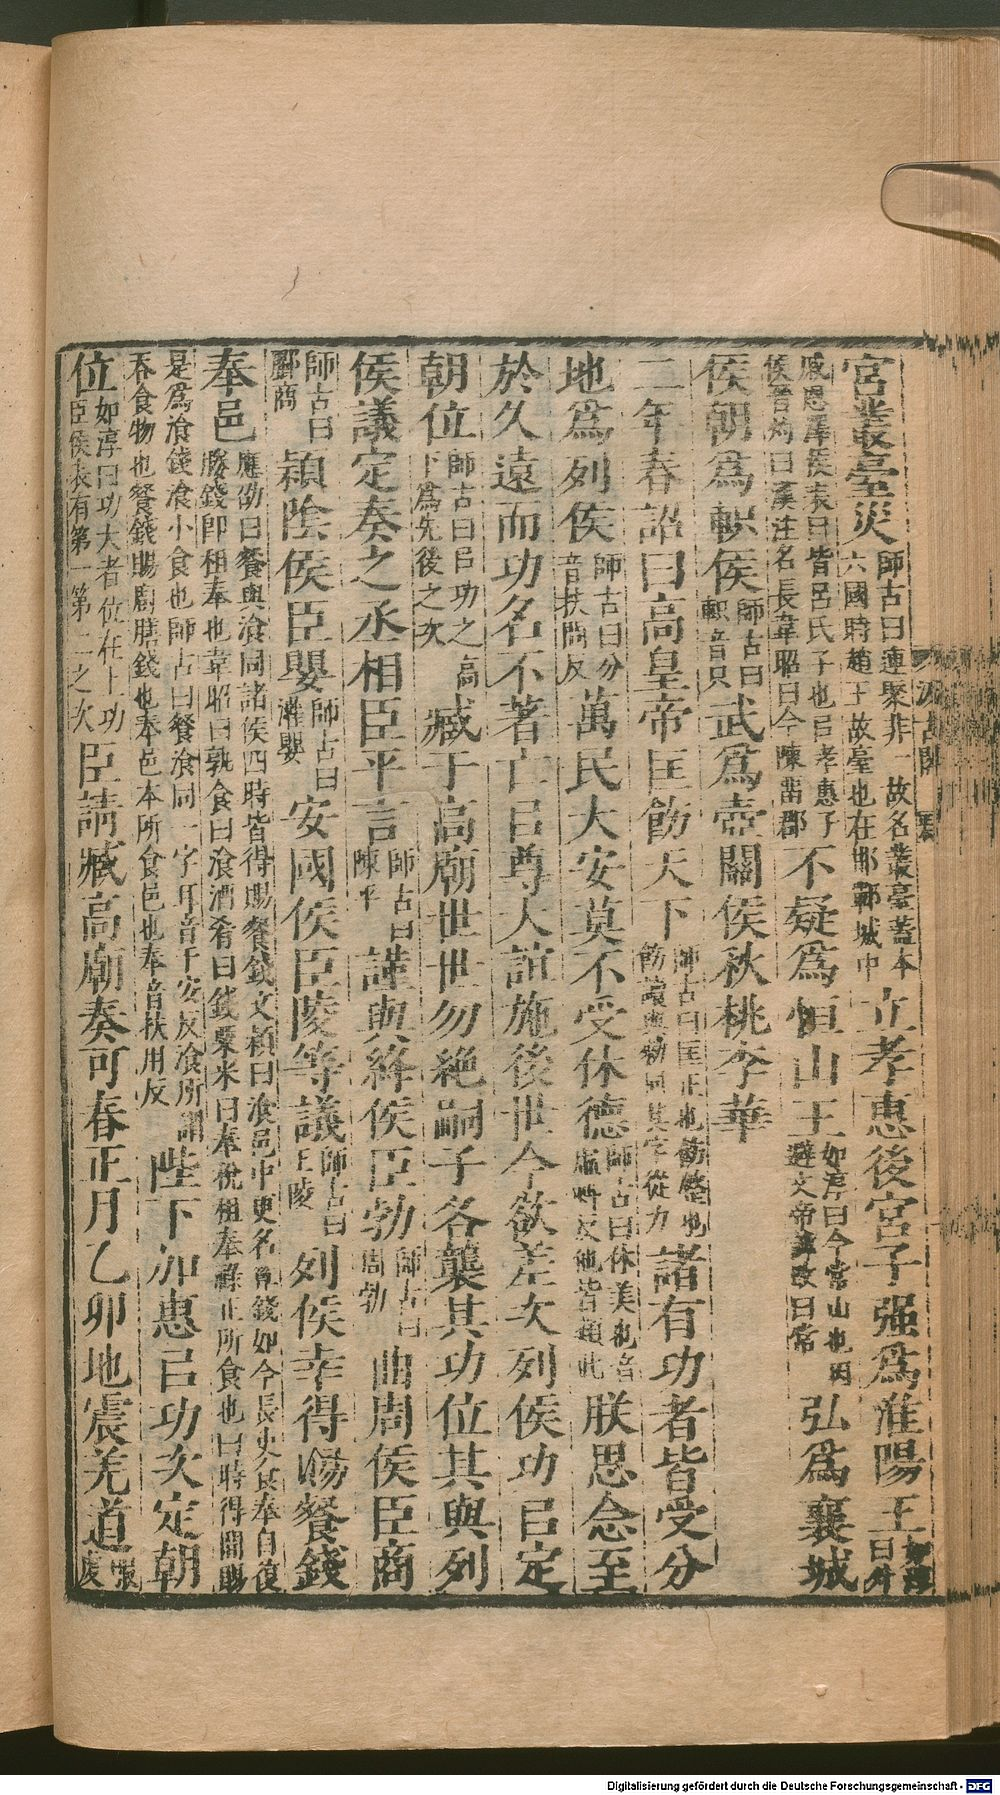 宮叢臺災師古曰連聚非一故名叢臺蓋本六國時趙王故臺也在邯鄲城中立孝惠後宮子强爲淮陽王如淳曰外
戚恩澤侯表曰皆呂氏子也㠯孝惠子侯晉灼曰漢注名長韋昭曰今陳留郡不疑爲恒山王如淳曰今常山也因避文帝諱改曰常弘爲襄城
侯朝爲軹侯師古曰軹音只武爲壺關侯秋桃李華
二年春詔曰高皇帝匡飭天下師古曰匡正也飭整也飭讀與勑同其字從力諸有功者皆受分
地爲列侯師古曰分音扶問反萬民大安莫不受休德師古曰休美也音虛虯反他皆類此朕思念至
於久遠而功名不著亡㠯尊大誼施後世今欲差次列侯功㠯定
朝位師古曰㠯功之高下爲先後之次臧于高廟世世勿絶嗣子各襲其功位其與列
侯議定奏之丞相臣平言師古曰陳平謹與絳侯臣勃師古曰周勃曲周侯臣商
師古曰酈商潁陰侯臣嬰師古曰灌嬰安國侯臣陵等議師古曰王陵列侯幸得賜餐錢
奉邑應劭曰餐與飡同諸侯四時皆得賜餐錢文穎曰飡邑中更名筭錢如今長吏食奉自復媵錢即租奉也韋昭曰孰食曰飡酒肴曰錢粟米曰奉稅租奉祿正所食也四時得閒賜
是爲飡錢飡小食也師古曰餐飡同一字耳音千安反飡所謂吞食物也餐錢賜廚膳錢也奉邑本所食邑也奉音扶用反陛下加惠㠯功次定朝
位如淳曰功大者位在上功臣侯表有第一第二之次臣請臧高廟奏可春正月乙卯地震羌道張晏
Digitalisierung gefördert durch die Deutsche Forschungsgemeinschaft - DFG